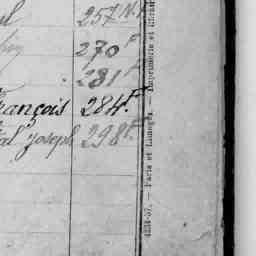 257 N.
270 F
281 F
François 284 F.
Joseph 298 F.
4234-37. — Paris et Limoges. — Imprimerie et librai